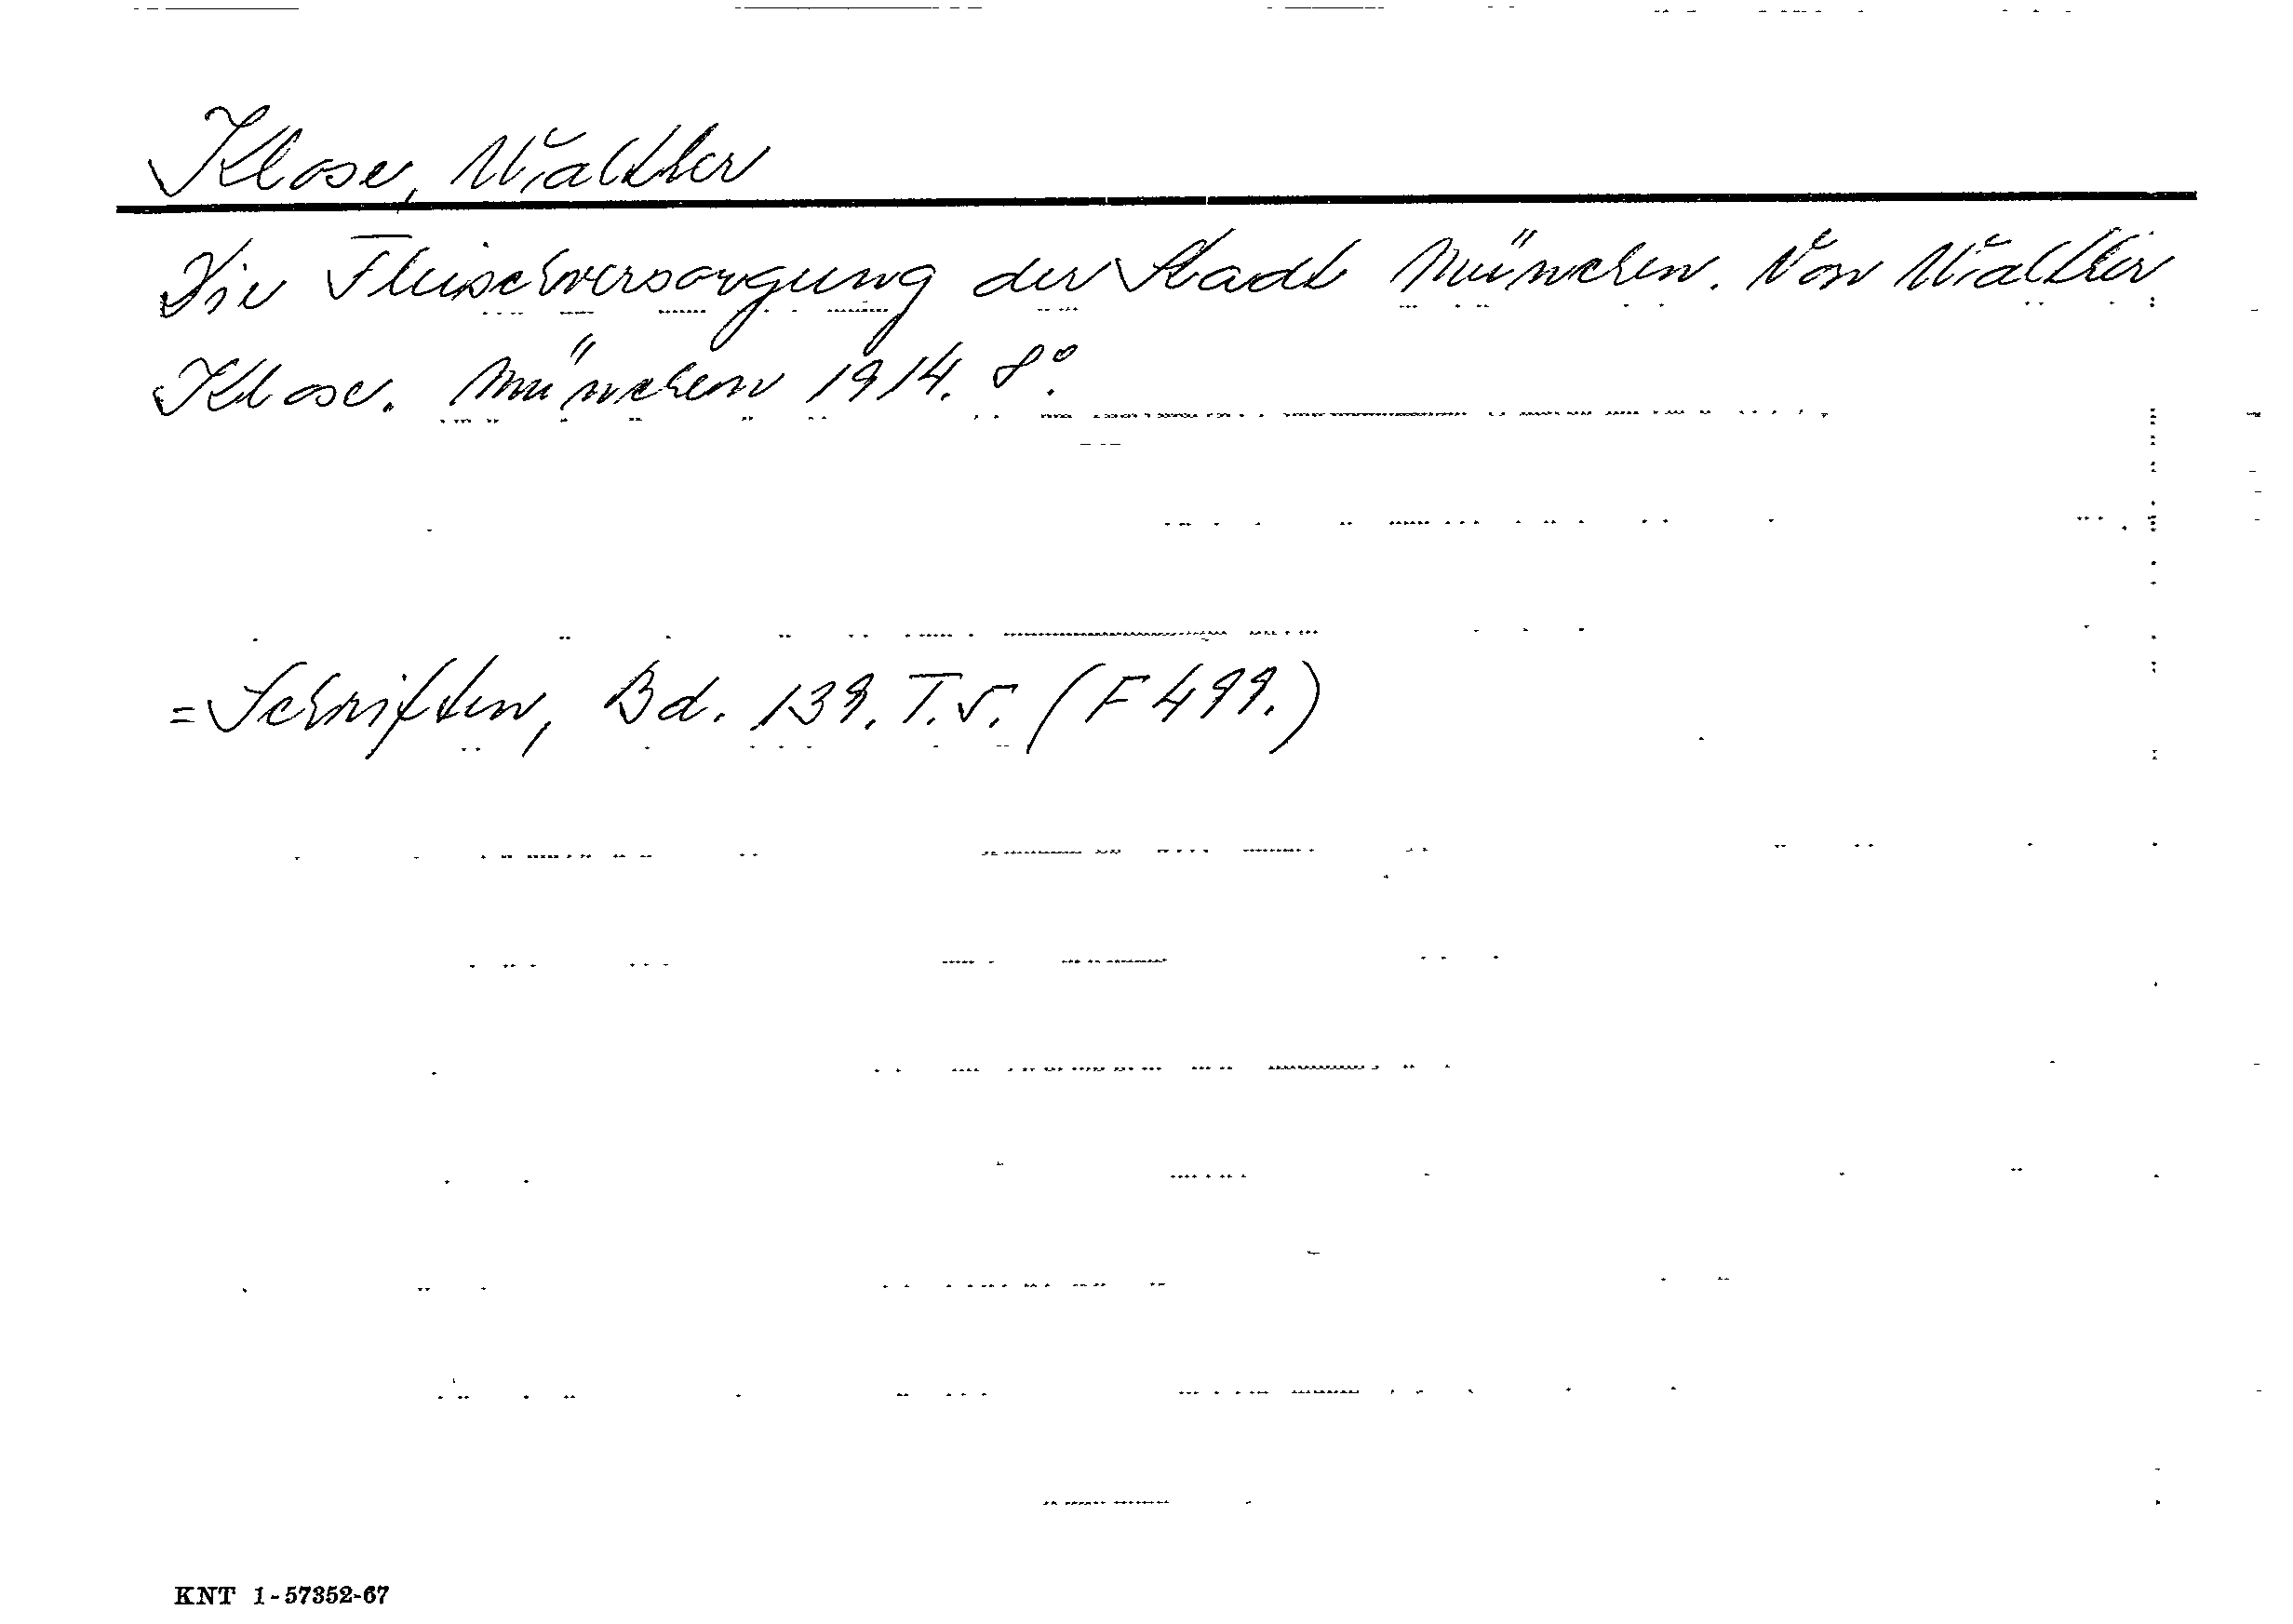 Klose, Walther
Die Fleischversorgung der Stadt München. Von Walther
Klose. München 1914. 8°.
= Schriften, Bd. 139. T. 5. (F 499.)
KNT 1-57352-67